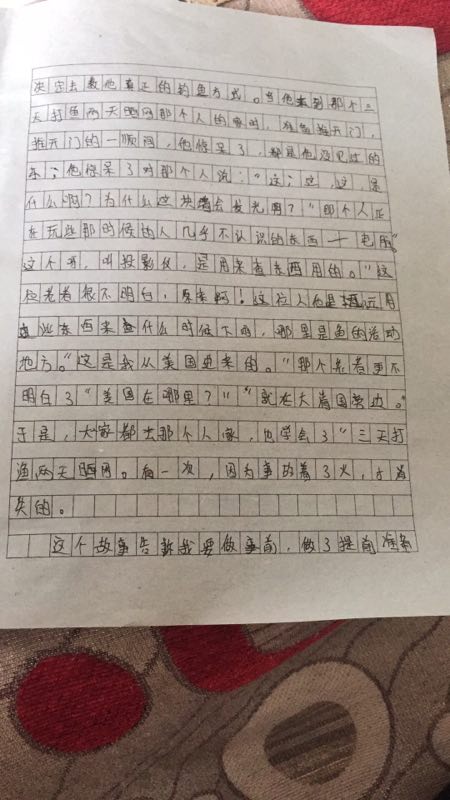 决定去教他真正的钓鱼方式。当他来到那个三
天打鱼两天晒网那个人的家时，准备推开门，
推开门的一顺间，他惊呆了，都是他没见过的
东；他惊呆了对那个人说：“这；这，这，是
什么啊？为什么这块墙会发光啊？”那个人正
在玩些那时候的人几乎不认识的东西一电脑。“
这个啊，叫投影仪，是用来查东西用的。”这
位老者很不明白，原来啊！这位人他是用
这东西来查什么时候下雨，那里是鱼的活动
地方。“这是我从美国进来的。”那个老者更不
明白了“美国在哪里？”“就在大清国旁边。”
于是，大家都去那个人家，也学会了“三天打
渔两天晒网。有一次，因为事故着了火，才消
失的。
这个故事告新我要做事前，做了提前准备